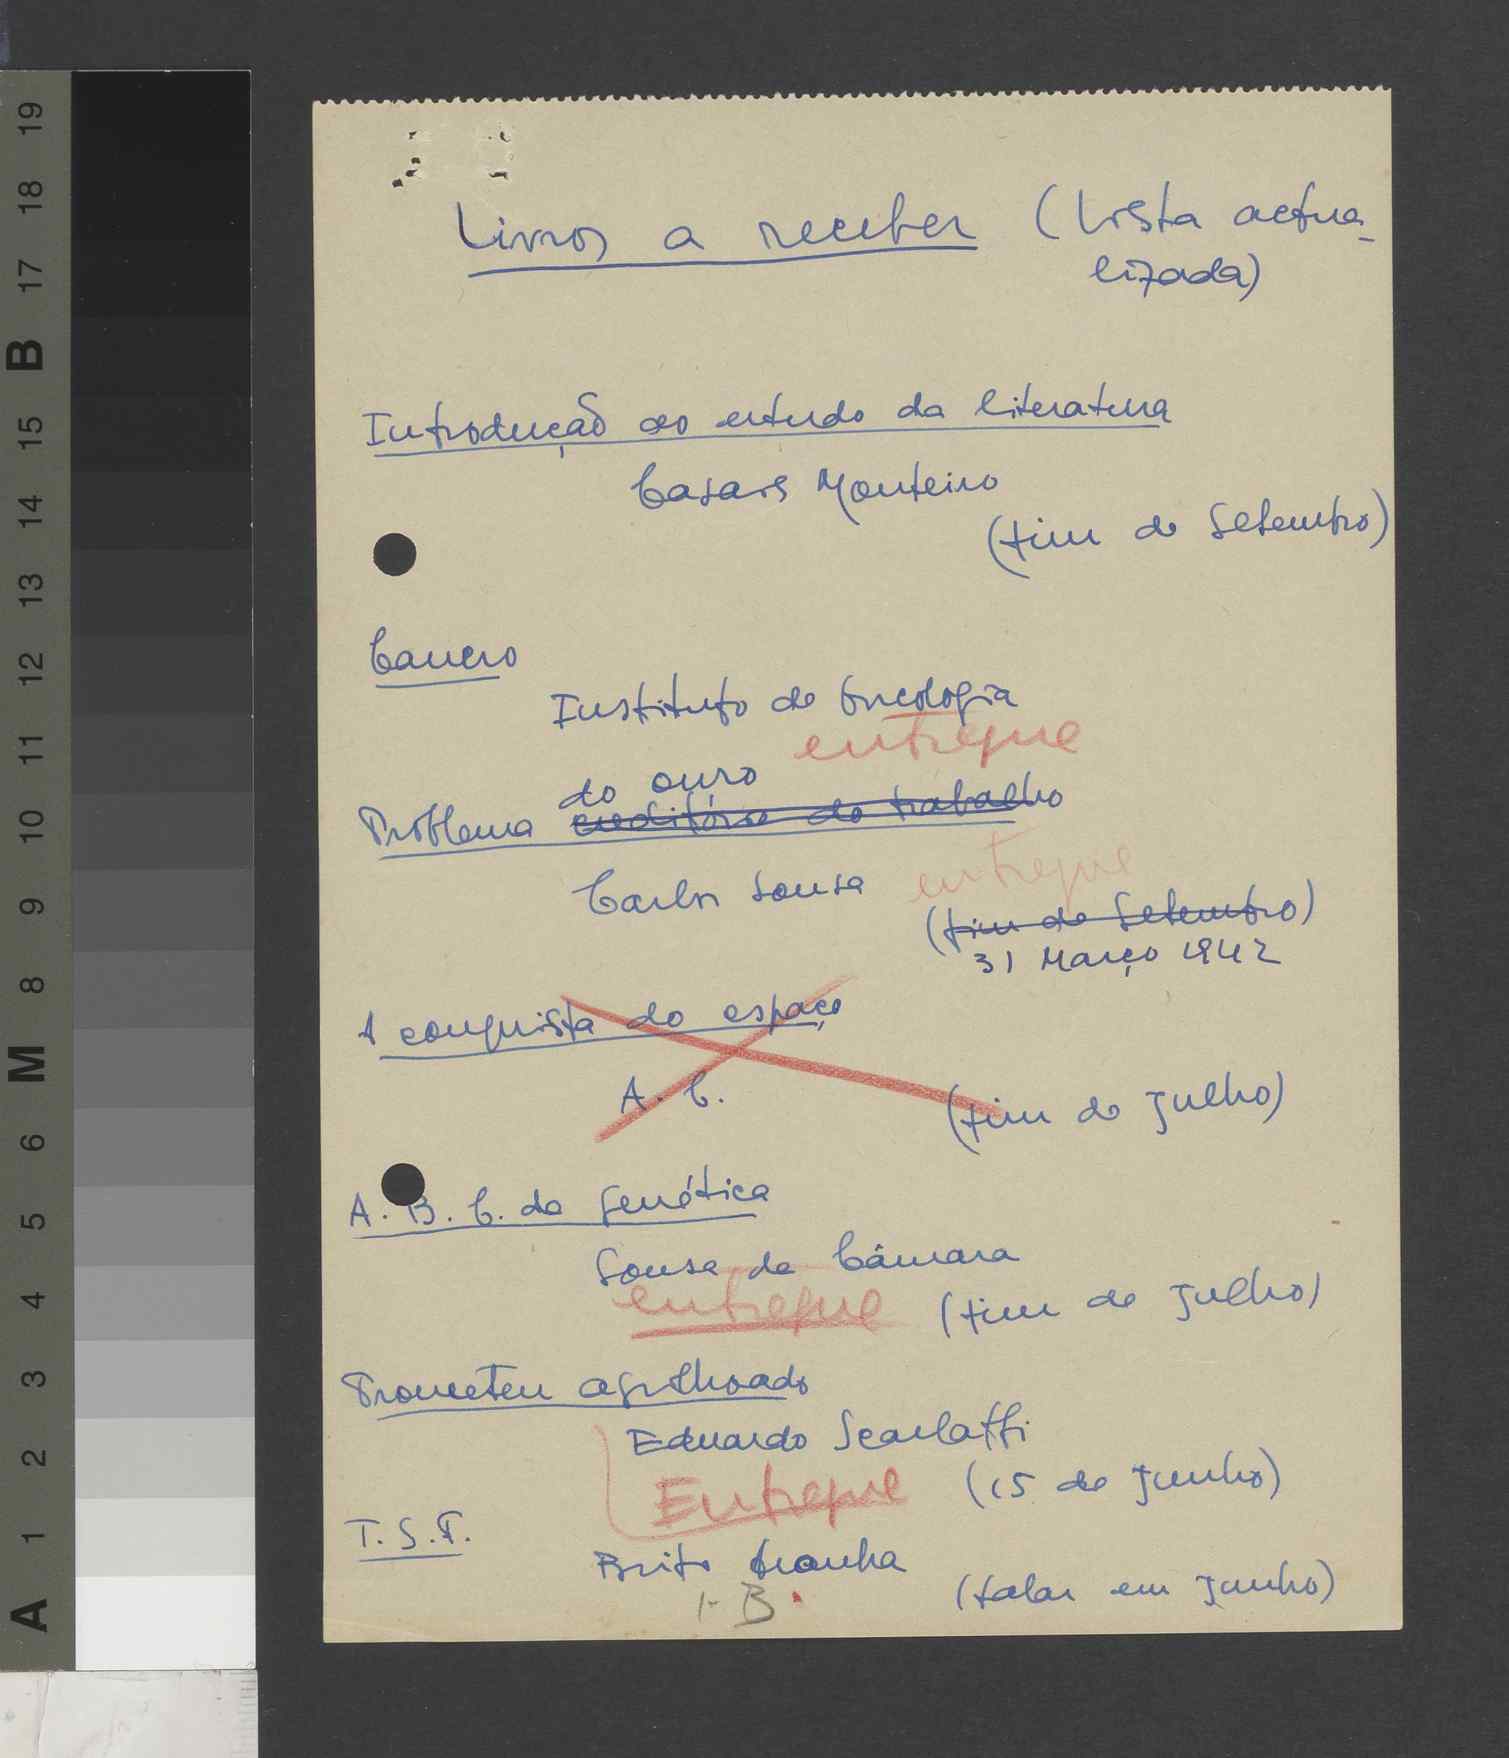 Livros a receber (Lista actua-
lizada)
Introdução ao estudo da literatura
Casais Monteiro
(fim de Setembro)
Cancro
Instituto de Oncologia
entregue
do ouro
Problema creditório do trabalho
Carlos Sousa entregue
(fim de Setembro)
31 Março 1942
A conquista do espaço
A. C.
(fim de Julho)
A. B. C. da Genética
Sousa da Câmara
entregue (fim de Julho)
Prometeu agrilhoado
Eduardo Scarlatti
Entregue (15 de Junho)
T. S. F.
Brito Aranha
(falar em Junho)
1-B.
19
18
17
B
15
14
13
12
11
10
9
8
M
6
5
4
3
2
1
A